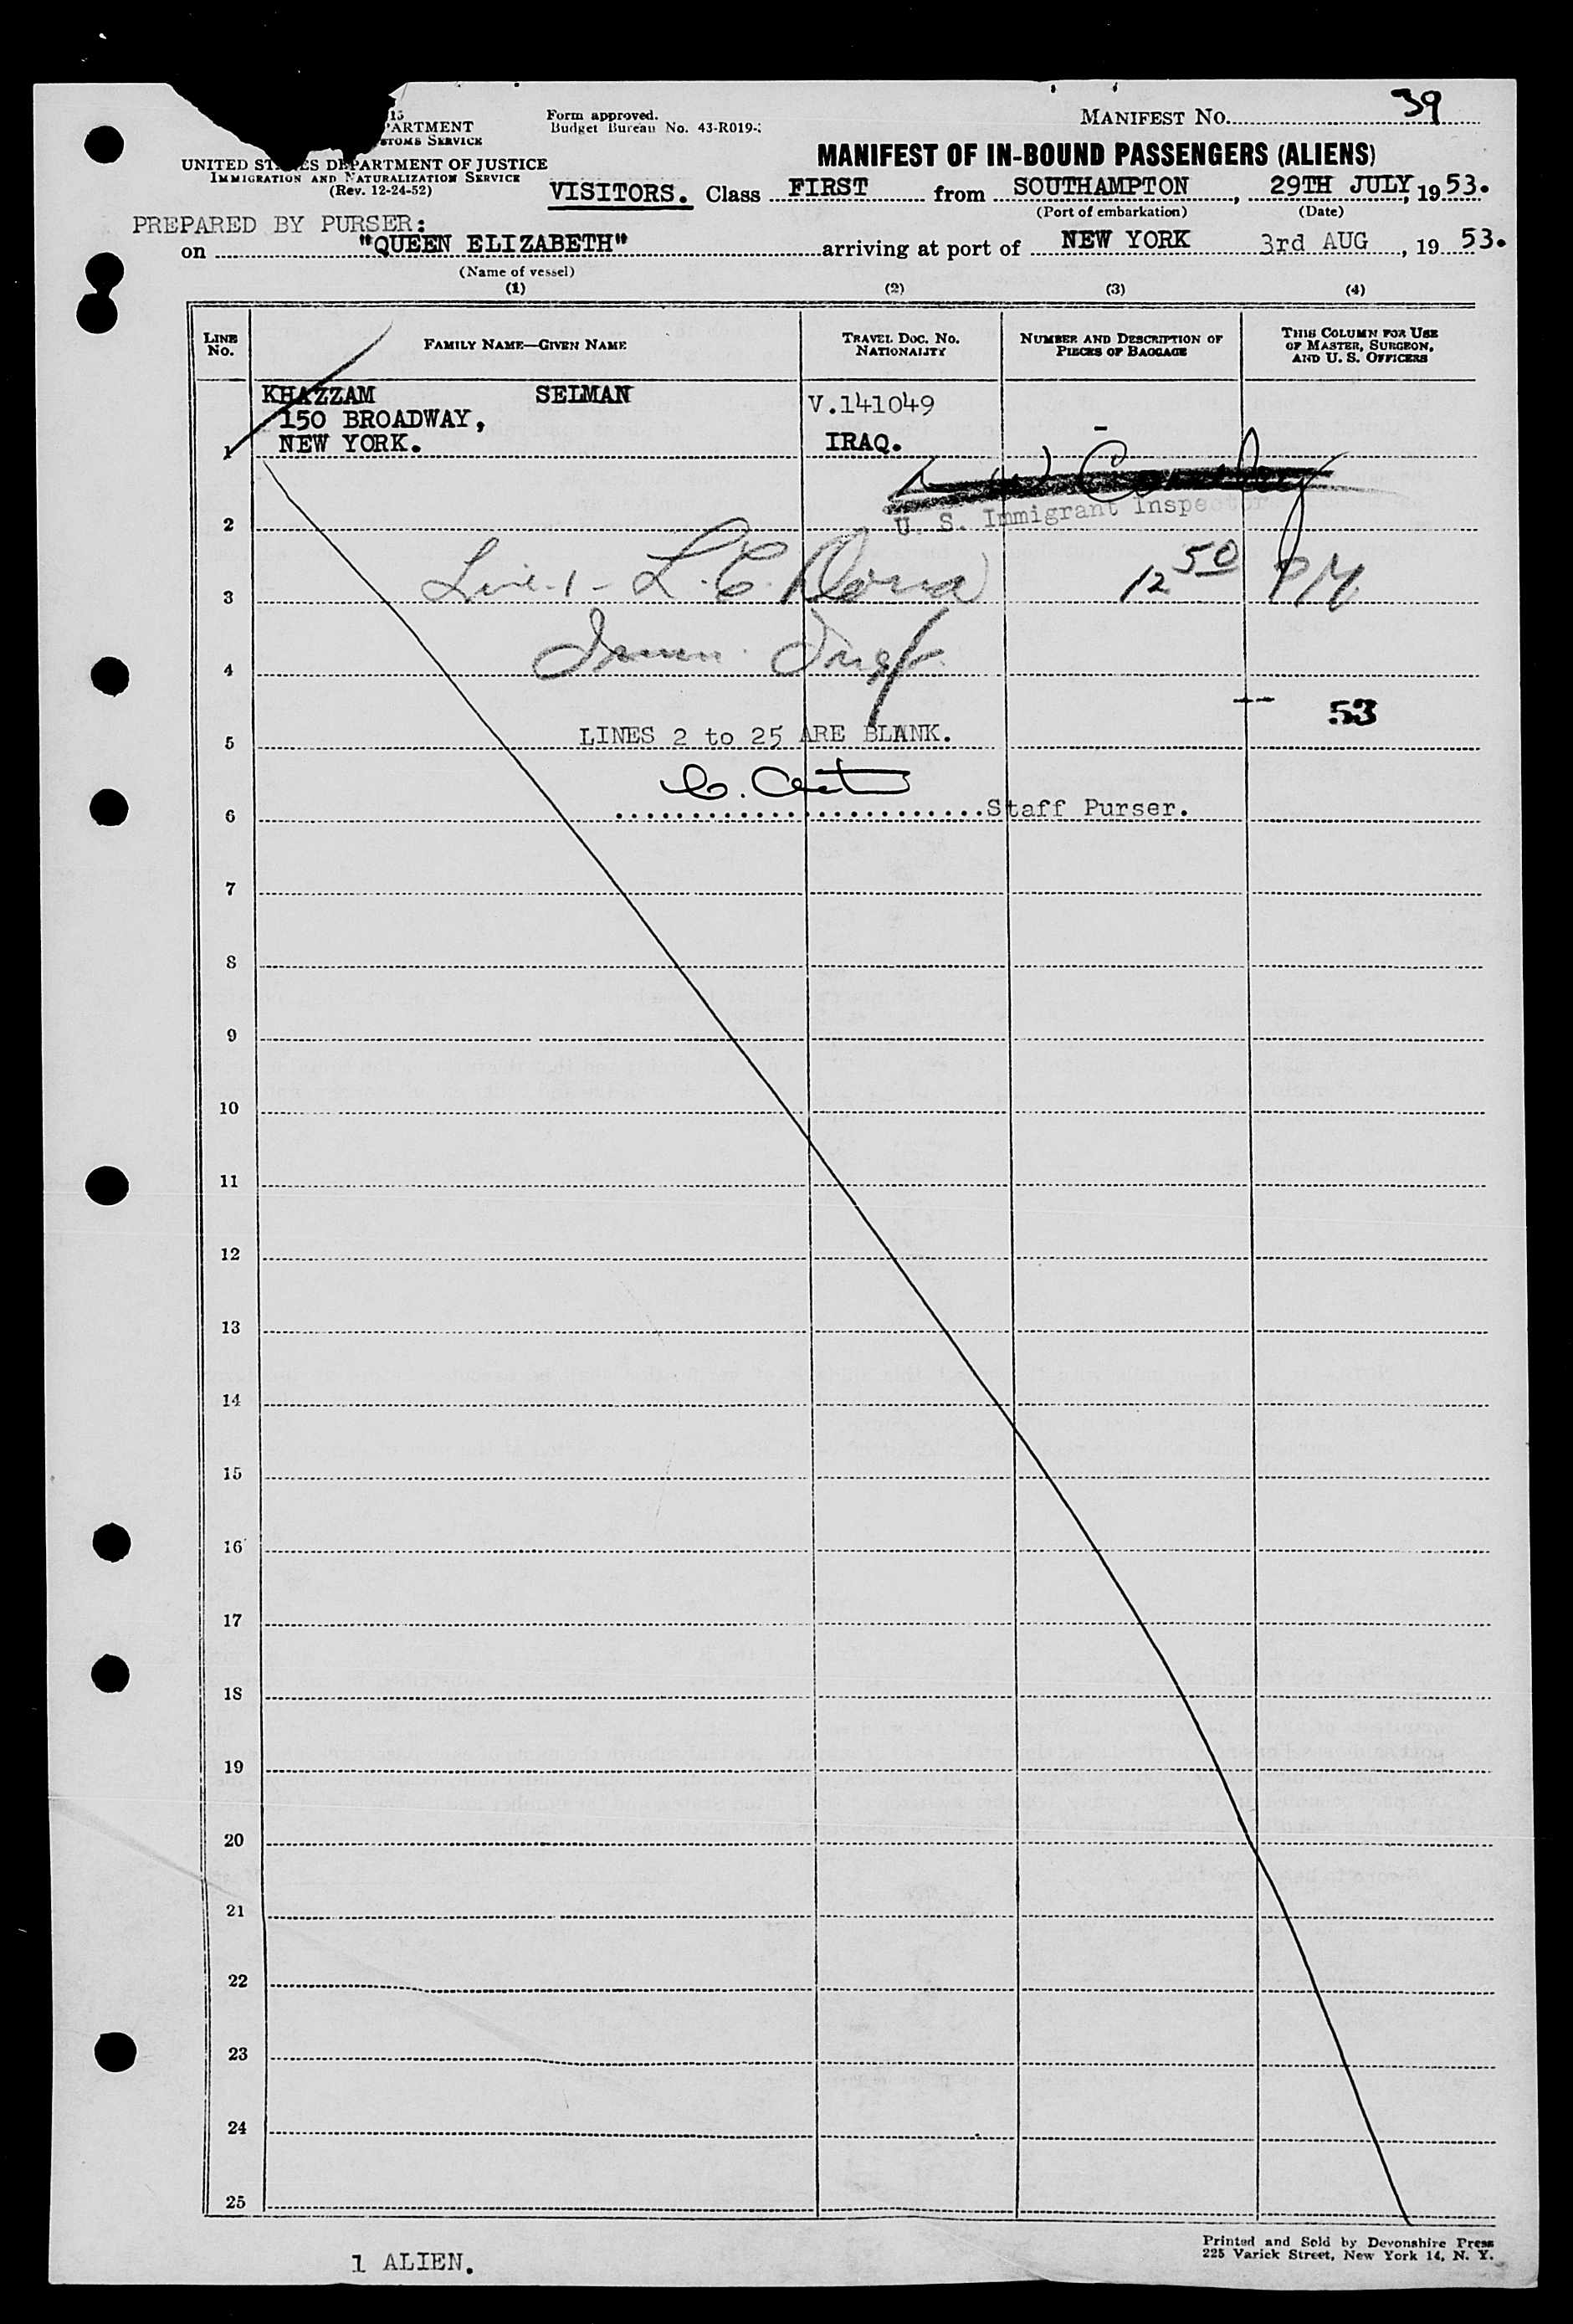 15
MANIFEST NO. 39
PARTMENT
STOMS SERVICE
Form approved.
Budget Bureau No. 43-R019-
UNITED STATES DEPARTMENT OF JUSTICE
IMMIGRATION AND NATURALIZATION SERVICE
(Rev. 12-24-52)
MANIFEST OF IN-BOUND PASSENGERS (ALIENS)
VISITORS. Class FIRST from SOUTHAMPTON, 29TH JULY, 1953.
(Port of embarkation) (Date)
PREPARED BY PURSER:
on "QUEEN ELIZABETH" arriving at port of NEW YORK 3rd AUG, 19 53.
(Name of vessel)
(1) (2) (3) (4)
LINE No. FAMILY NAME—GIVEN NAME TRAVEL DOC. NO. NATIONALITY NUMBER AND DESCRIPTION OF PIECES OF BAGGAGE THIS COLUMN FOR USE OF MASTER, SURGEON, AND U. S. OFFICERS
KHAZZAM SELMAN V.141049
150 BROADWAY,
1 NEW YORK. IRAQ.
U. S. Immigrant Inspector
2
3 Line 1 - L.C. 12 50 PM
4 Imm. Insp.
53
5 LINES 2 to 25 ARE BLANK.
6 Staff Purser.
7
8
9
10
11
12
13
14
15
16
17
18
19
20
21
22
23
24
25
1 ALIEN.
Printed and Sold by Devonshire Press
225 Varick Street, New York 14, N. Y.